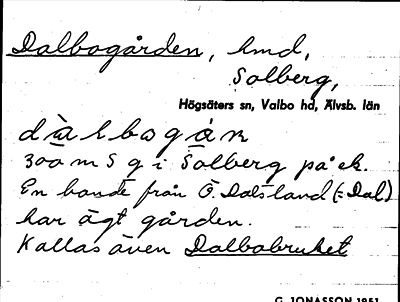 Dalbogården, hmd,
Solberg,
Högsäters sn, Valbo hd, Älvsb. län
dàlbogán
300 m S g i Solberg på ek.
En bonde från Ö. Dalsland (= Dal)
har ägt gården.
Kallas även Dalbobruket
G. JONASSON 1951